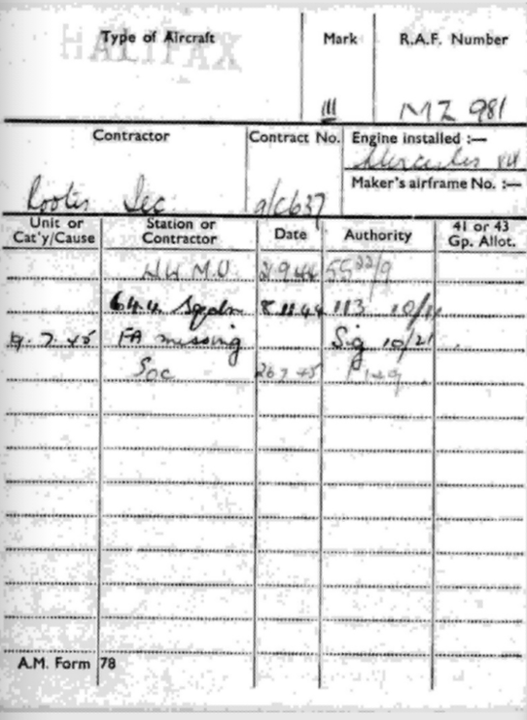 HALIFAX
Type of Aircraft Mark R.A.F. Number
III MZ 981
Contractor Contract No. Engine installed :—
Hercules XVI
Maker's airframe No. :—
Rootes Sec a/c637
Unit or Cat'y/Cause Station or Contractor Date Authority 41 or 43 Gp. Allot.
44 M.U. 2 9 44 55 22/9
644 Sqdn 8 11 44 113 10/11
9. 7. 45 FA missing Sig 10/21
Soc 26 7 45
A.M. Form 78